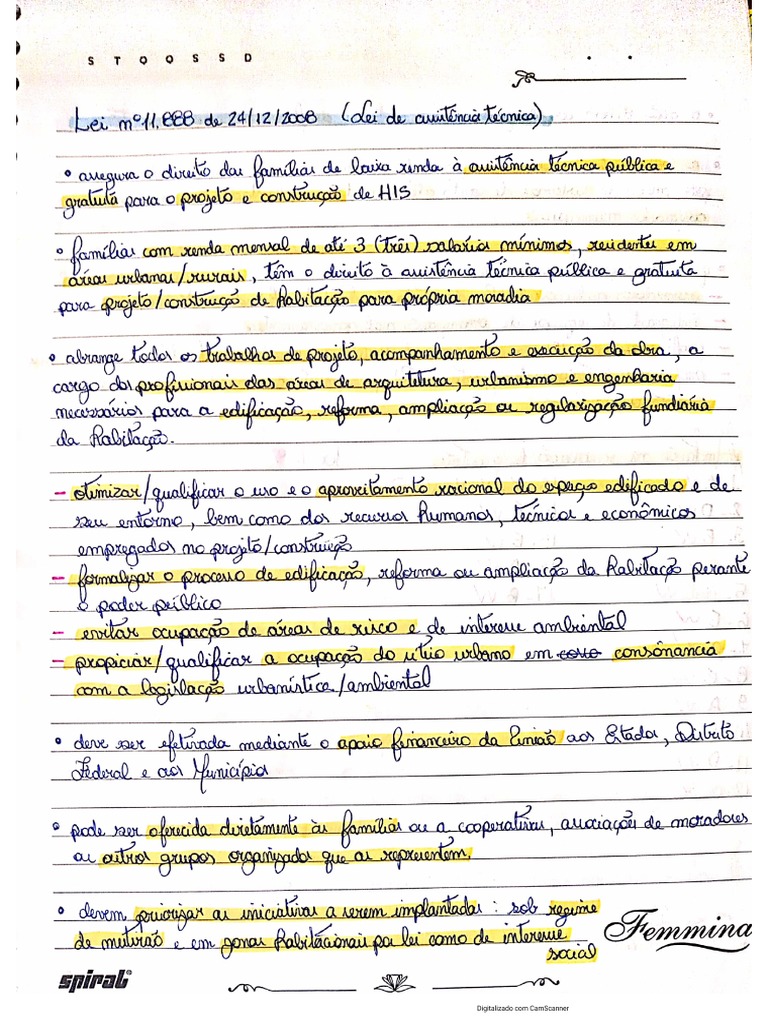 S T Q Q S S D
Lei nº 11.888 de 24/12/2008 (Lei de assistência técnica)
• assegura o direito das famílias de baixa renda à assistência técnica pública e
gratuita para o projeto e construção de HIS
• famílias com renda mensal de até 3 (três) salários mínimos, residentes em
áreas urbanas/rurais, têm o direito à assistência técnica pública e gratuita
para projeto/construção de habitação para própria moradia
• abrange todos os trabalhos de projeto, acompanhamento e execução da obra, a
cargo dos profissionais das áreas de arquitetura, urbanismo e engenharia
necessários para a edificação, reforma, ampliação ou regularização fundiária
da habitação.
- otimizar/qualificar o uso e o aproveitamento racional do espaço edificado e de
seu entorno, bem como dos recursos humanos, técnicos e econômicos
empregados no projeto/construção
- formalizar o processo de edificação, reforma ou ampliação da habitação perante
o poder público
- evitar ocupação de áreas de risco e de interesse ambiental
- propiciar/qualificar a ocupação do sítio urbano em consonância
com a legislação urbanística/ambiental
• deve ser efetivada mediante o apoio financeiro da União aos Estados, Distrito
Federal e aos Municípios
• pode ser oferecida diretamente às famílias ou a cooperativas, associações de moradores
ou outros grupos organizados que as representem.
• devem priorizar as iniciativas a serem implantadas: sob regime
de mutirão e em zonas habitacionais por lei como de interesse
social
Femmina
spiral
Digitalizado com CamScanner